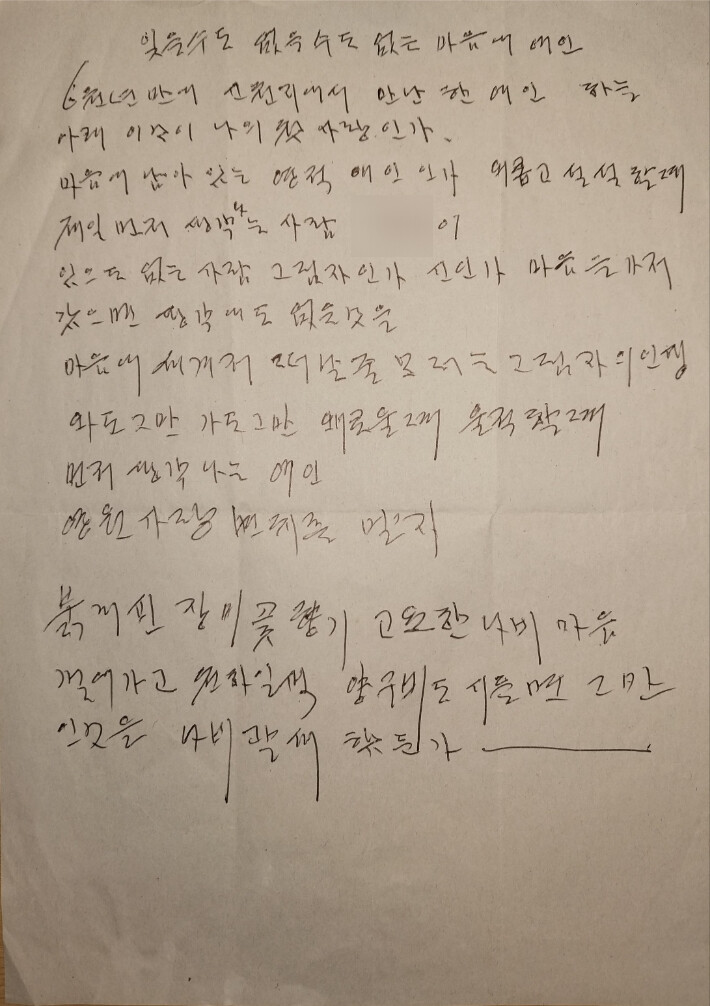 잊을수도 없을수도 없는 마음에 애인
6천년만에 산천리에서 만난 한 애인 하늘
아래 이것이 나의 첫 사랑인가.
마음에 남아 있는 연적 애인 인가 외롭고 설설 할때
제일 먼저 생각나는 사람 이
있으도 없는 사람 그림자인가 신인가 마음을가저
갔으면 생각에도 없을것을
마음에 세게저 떠날줄 모러는 그림자의인생
와도그만 가도그만 왜로울그때 울적할그때
먼저 생각 나는 애인
영원 사랑
붉게핀 장미꽃향기 고요한나비 마음
걸어가고 천하일색 양구비도 시들면 그만
인것을 나비 말새 했든가